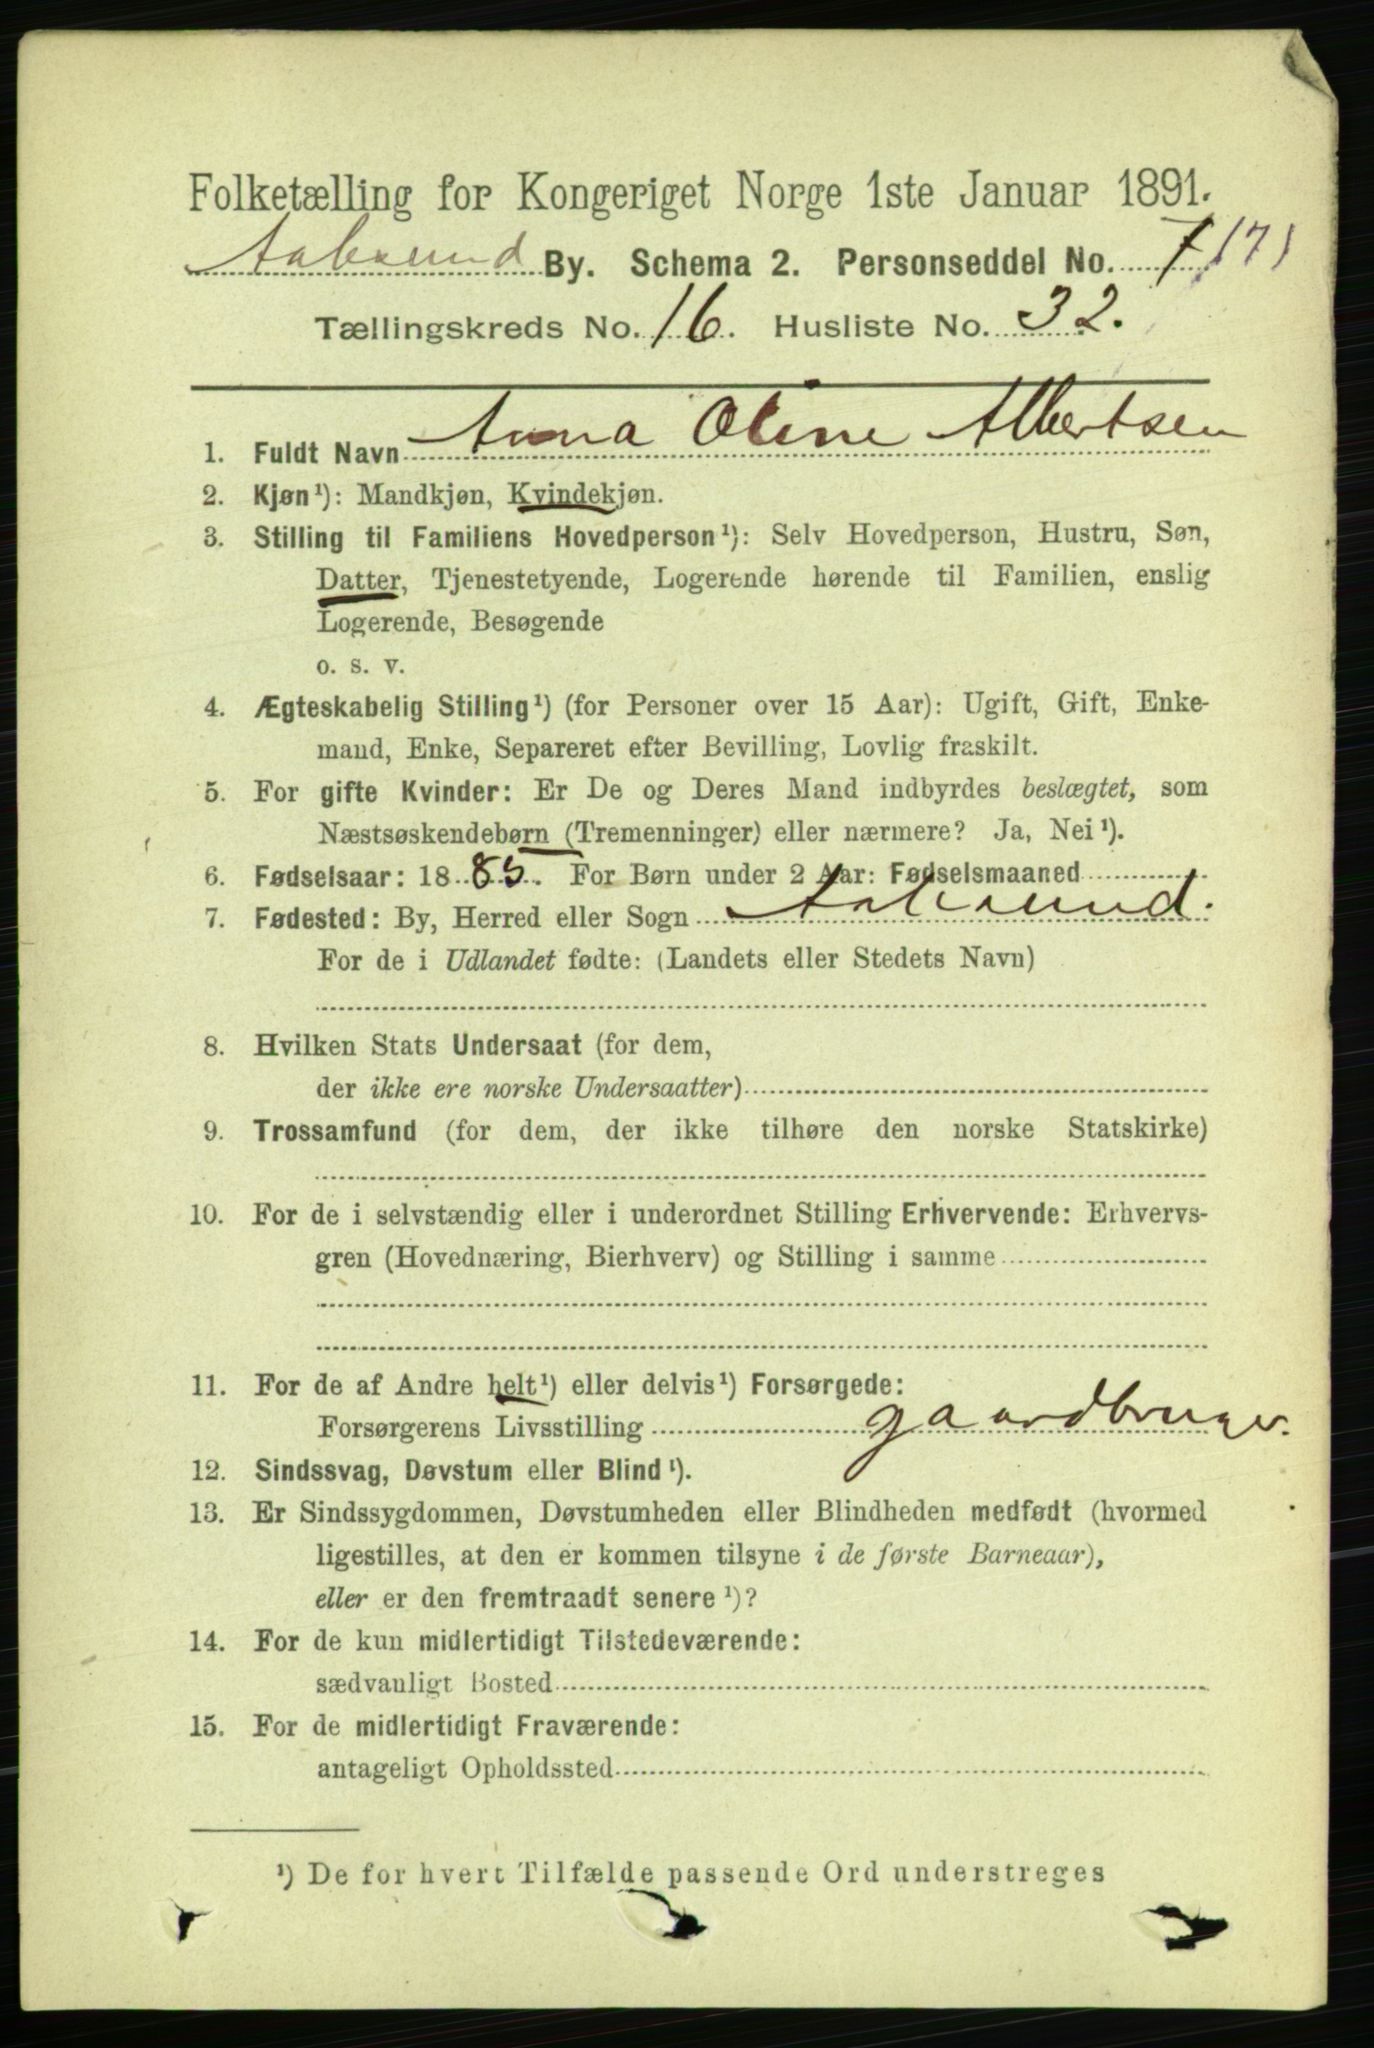 Folketælling for Kongeriget Norge 1ste Januar 1891.
Aalesund By. Schema 2. Personseddel No. 7 171
Tællingskreds No. 16. Husliste No. 32.
1. Fuldt Navn Anna Oline Albertsen
2. Kjøn¹): Mandkjøn, Kvindekjøn.
3. Stilling til Familiens Hovedperson¹): Selv Hovedperson, Hustru, Søn,
Datter, Tjenestetyende, Logerende hørende til Familien, enslig
Logerende, Besøgende
o. s. v.
4. Ægteskabelig Stilling¹) (for Personer over 15 Aar): Ugift, Gift, Enke-
mand, Enke, Separeret efter Bevilling, Lovlig fraskilt.
5. For gifte Kvinder: Er De og Deres Mand indbyrdes beslægtet, som
Næstsøskendebørn (Tremenninger) eller nærmere? Ja, Nei¹).
6. Fødselsaar: 1885. For Børn under 2 Aar: Fødselsmaaned
7. Fødested: By, Herred eller Sogn Aalesund.
For de i Udlandet fødte: (Landets eller Stedets Navn)
8. Hvilken Stats Undersaat (for dem,
der ikke ere norske Undersaatter)
9. Trossamfund (for dem, der ikke tilhøre den norske Statskirke)
10. For de i selvstændig eller i underordnet Stilling Erhvervende: Erhvervs-
gren (Hovednæring, Bierhverv) og Stilling i samme
11. For de af Andre helt¹) eller delvis¹) Forsørgede:
Forsørgerens Livsstilling gaardbruger.
12. Sindssvag, Døvstum eller Blind¹).
13. Er Sindssygdommen, Døvstumheden eller Blindheden medfødt (hvormed
ligestilles, at den er kommen tilsyne i de første Barneaar),
eller er den fremtraadt senere¹)?
14. For de kun midlertidigt Tilstedeværende:
sædvanligt Bosted
15. For de midlertidigt Fraværende:
antageligt Opholdssted
¹) De for hvert Tilfælde passende Ord understreges